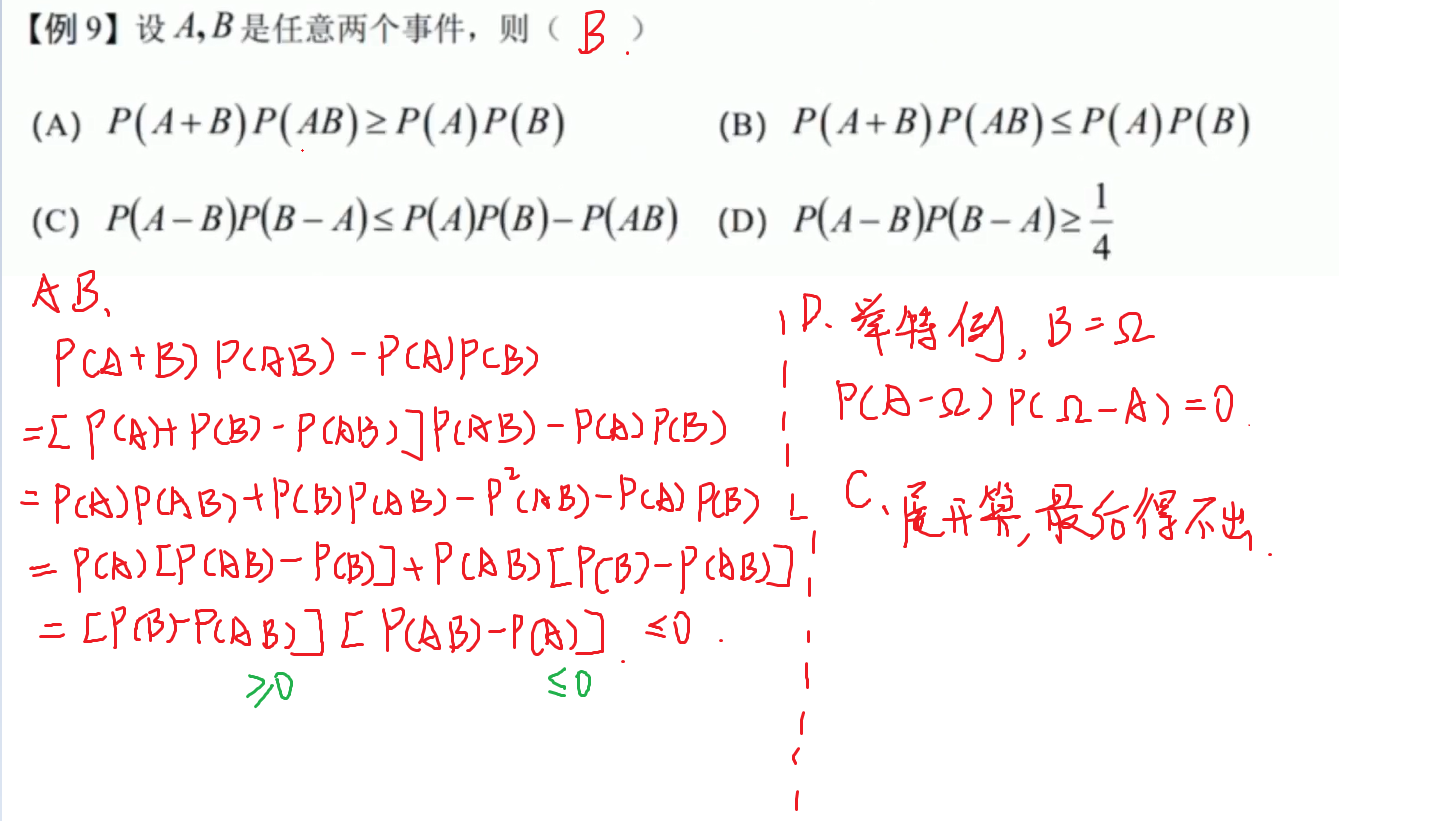 【例9】设 A, B 是任意两个事件，则（ B. ）
(A) P(A+B)P(AB)≥P(A)P(B) (B) P(A+B)P(AB)≤P(A)P(B)
(C) P(A−B)P(B−A)≤P(A)P(B)−P(AB) (D) P(A−B)P(B−A)≥1/4
AB、
P(A+B)P(AB)-P(A)P(B)
=[P(A)+P(B)-P(AB)]P(AB)-P(A)P(B)
=P(A)P(AB)+P(B)P(AB)-P²(AB)-P(A)P(B)
=P(A)[P(AB)-P(B)]+P(AB)[P(B)-P(AB)]
=[P(B)-P(AB)][P(AB)-P(A)] ≤0.
≥0 ≤0
D、举特例, B=Ω
P(A-Ω)P(Ω-A)=0.
C、展开算,最后得不出.